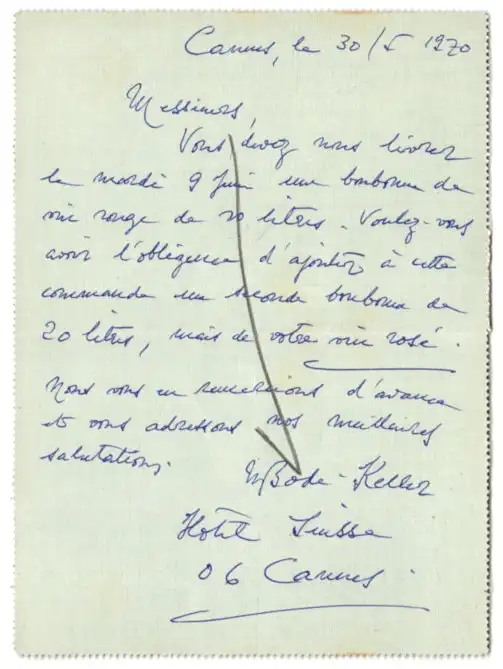 Cannes, le 30/5 1970
Messieurs,
Vous devez nous livrer
le mardi 9 juin une bonbonne de
vin rouge de 20 litres. Voulez-vous
avoir l'obligeance d'ajouter à cette
commande une seconde bonbonne de
20 litres, mais de votre vin rosé.
Nous vous en remercions d'avance
et vous adressons nos meilleures
salutations.
Bode-Keller
Hôtel Suisse
06 Cannes.